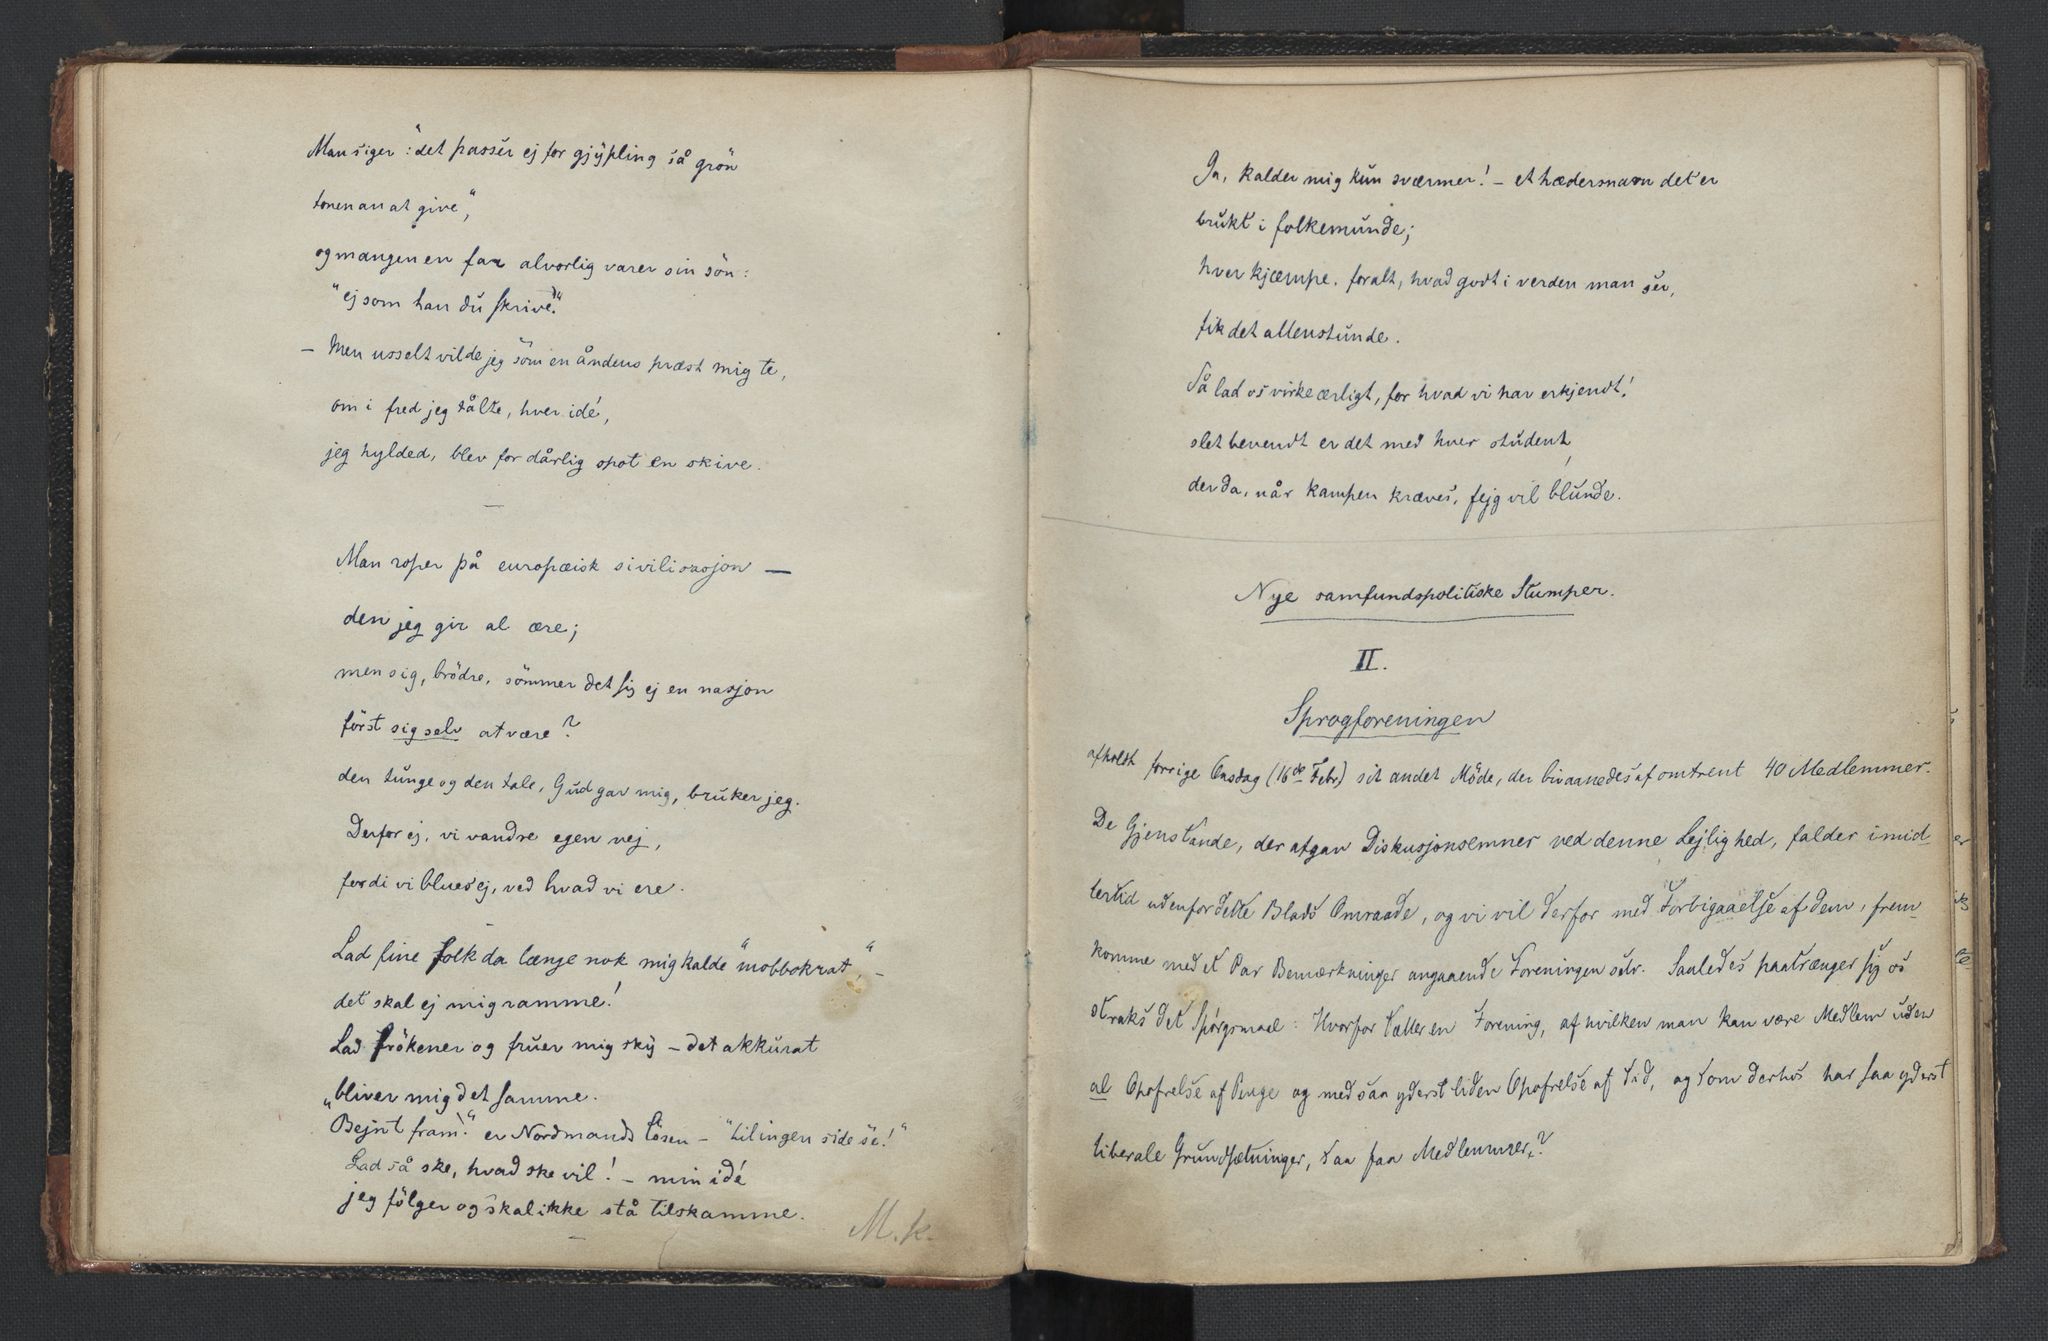 Man siger: "det passer ej for gjypling så grön
tonen an at give",
og mangen en far alvorlig varer sin sön:
"ej som han du skrive!"
– Men usselt vilde jeg som en åndens præst mig te,
om i fred jeg tålte, hver idé,
jeg hylded, blev for dårlig spot en skive.
—
Man roper på europæisk sivilisasjon —
den jeg gir al ære;
men sig, brödre, sömmer det sig ej en nasjon
först sig selv at være?
den tunge og den tale, Gud gav mig, bruker jeg.
Derfor ej, vi vandre egen vej,
fordi vi blues ej, ved hvad vi ere.
—
Lad fine folk da længe nok mig kalde "mobbokrat", –
det skal ej mig ramme!
Lad frökener og fruer mig sky – det akkurat
bliver mig det samme.
"Bejnt fram!" er Nordmands lösen – "til ingen side se!"
Lad så ske, hvad ske vil! – min idé
jeg fölger og skal ikke stå tilskamme.
—
M.k.
Ja, kalder mig kun sværmer! – et hædersnavn det er
brukt i folkemunde;
hver kjæmpe. for alt, hvad godt i verden man ser,
fik det allenstunde.
Så lad os virke ærligt, for hvad vi har erkjendt!
slet bevendt er det med hver student,
der da, når kampen kræves, fejg vil blunde.
Nye samfundspolitiske Stumper.
II.
Sprogforeningen
afholdt forrige Onsdag (16de Febr) sit andet Möde, der bivaanedes af omtrent 40 Medlemmer.
De Gjenstande, der afgav Diskusjonsemner ved denne Lejlighed, falder imid-
lertid udenfor dette Blads Omraade, og vi vil derfor med Forbigaaelse af dem, frem-
komme med et Par Bemærkninger angaaende Foreningen selv. Saaledes paatrænger sig os
straks det Spörgsmaal: Hvorfor tæller en Forening, af hvilken man kan være Medlem uden
al Opofrelse af Penge og med saa yderst liden Opofrelse af Tid, og som derhos har saa yderst
liberale Grundsætninger, saa faa Medlemmer?